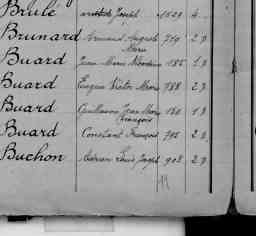 Brulé Joseph 1509 4
Brunard Armand Auguste 719 2 D
Marie
Buard Jean Marie 185 1 D
Buard Eugène Victor Marie 788 2 D
Buard Guillaume Jean Marie 180 1 D
François
Buard Constant François 795 2 D
Buchon Adrien Louis Joseph 908 2 D